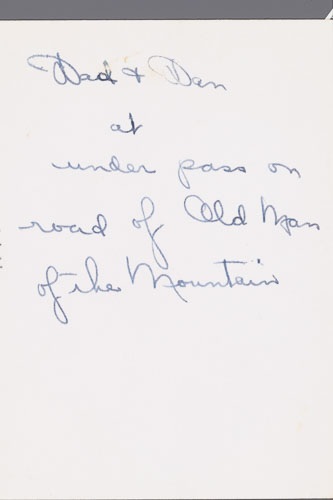 Dad & Dan
at
under pass on
road of Old Man
of the Mountain